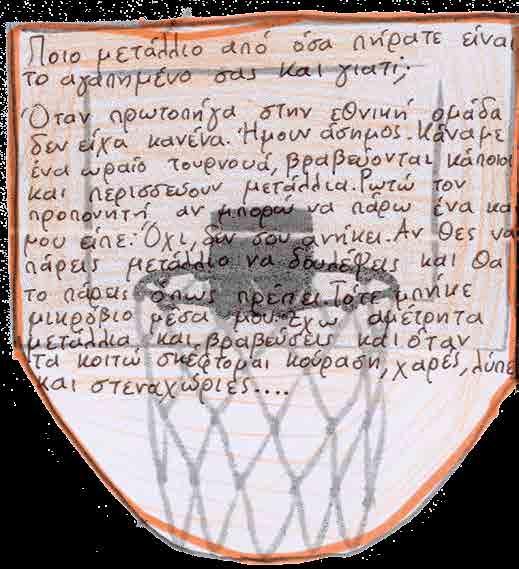 Ποιο μετάλλιο από όσα πήρατε είναι
το αγαπημένο σας και γιατί;
Όταν πρωτοπήγα στην εθνική ομάδα
δεν είχα κανένα. Ήμουν άσημος. Κάναμε
ένα ωραίο τουρνουά, βραβεύονται κάποιοι
και περισσεύουν μετάλλια. Ρωτώ τον
προπονητή αν μπορώ να πάρω ένα και
μου είπε: Όχι, δεν σου ανήκει. Αν θες να
πάρεις μετάλλιο να δουλέψεις και θα
το πάρεις όπως πρέπει. Τότε μπήκε
μικρόβιο μέσα μου. Έχω αμέτρητα
μετάλλια και βραβεύσεις και όταν
τα κοιτώ σκέφτομαι κούραση, χαρές, λύπε
και στεναχώριες....